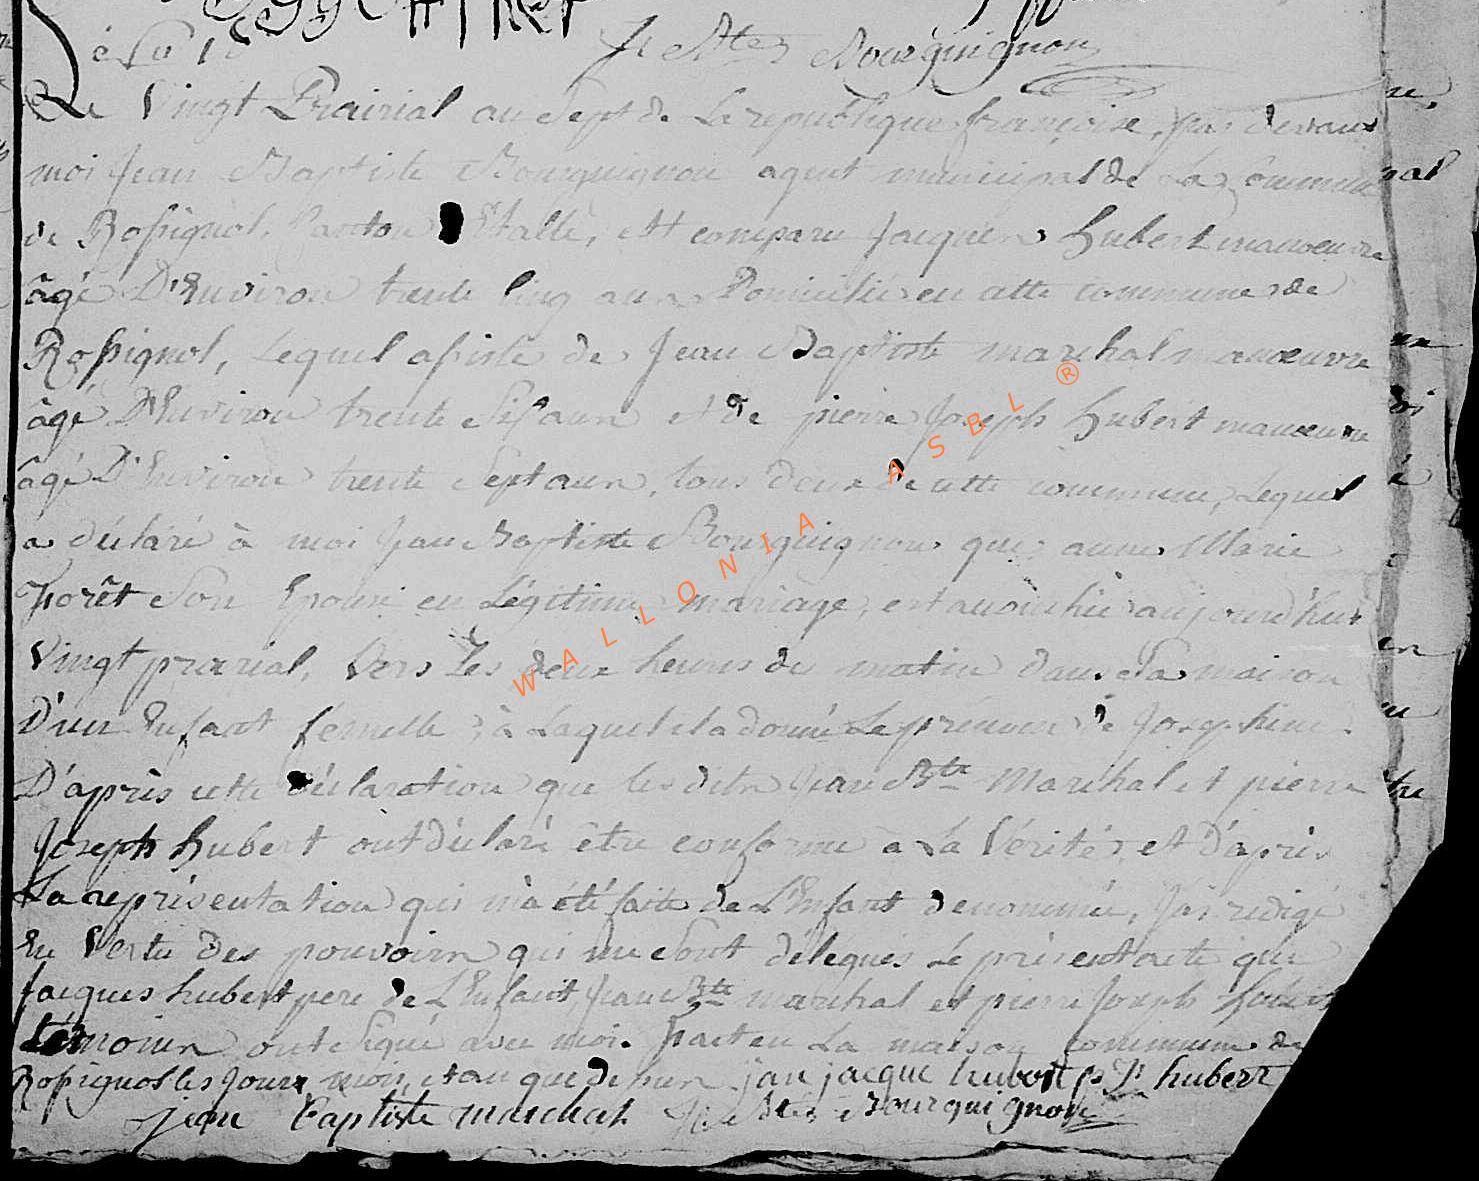 Jn Btes Bourguignon
Le Vingt Prairial an Sept de La republique françoise, par devant
moi Jean Baptiste Bourguignon agent municipal de La Commune
de Rossignol, Canton d'Etalle, est comparu Jacques hubert manoeuvre
âgé D'Environ trente Cinq ans Domicilié en cette commune de
Rossignol, Lequel assisté de Jean Baptiste marchal manoeuvre
âgé D'Environ trente Six ans et de pierre Joseph hubert manoeuvre
âgé D'Environ trente Sept ans, tous deux de cette commune, Lequel
a déclaré à moi Jean Baptiste Bourguignon que anne Marie
Forêt Son Epouse en Légitime mariage, est accouchée aujourd'hui
Vingt prairial, Vers Les deux heures du matin dans Sa maison
D'un Enfant femelle, à Laquel il a donné Le prénom de Josephine.
D'après cette déclaration que les dits Jean Bte Marchal et pierre
Joseph hubert ont déclaré être conforme a La Vérité, et D'après
La représentation qui m'a été faite de L'Enfant dénommée, J'ai redigé
En Vertu Des pouvoirs qui me Sont délegués Le présent acte que
Jacques hubert pere de L'Enfant, Jean Bte marchal et pierre Joseph hubert
témoins ont Signé avec moi. fait en La maison commune de
Rossignol les Jours mois, et an que dessus jan jacque hubert p J hubert
jean baptiste marchal Jn Btes Bourguignon
WALLONIA ASBL ®